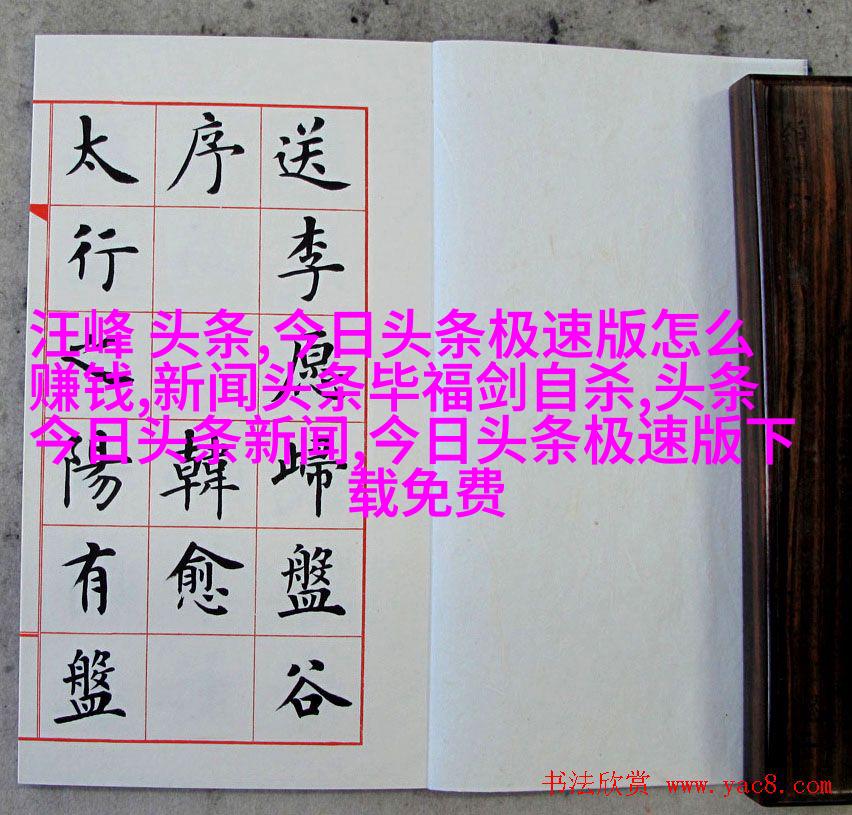 送李愿歸盤谷
序 韓愈
太行之陽有盤
汪峰 头条,今日头条极速版怎么
赚钱,新闻头条毕福剑自杀,头条
今日头条新闻,今日头条极速版下
载免费
书法欣赏 www.yac8.com